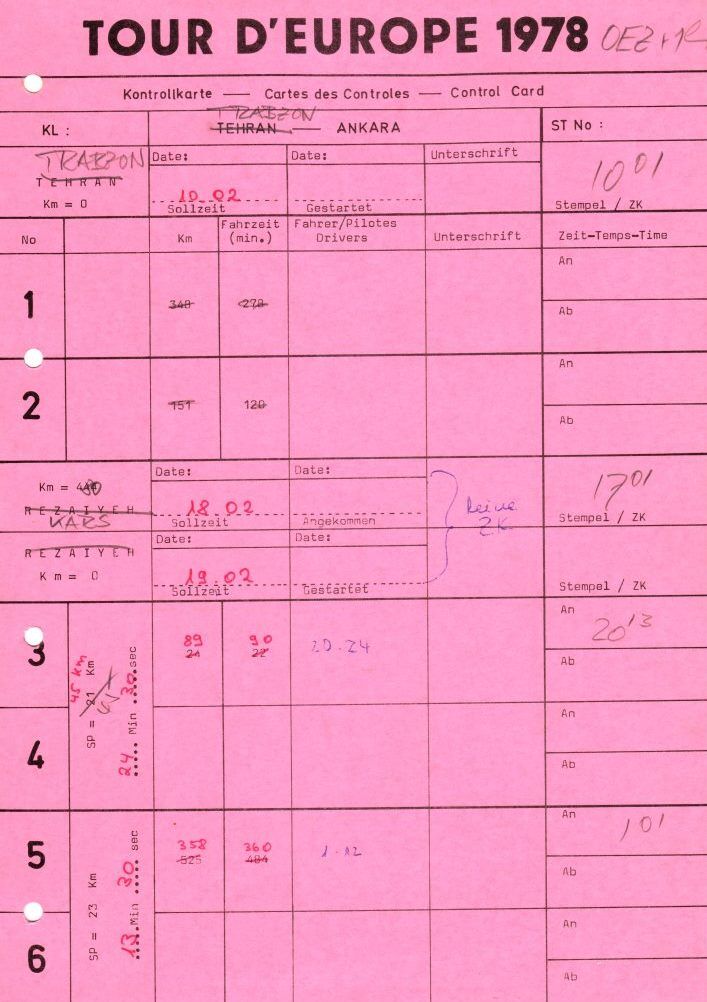 TOUR D'EUROPE 1978 OEZ + R
Kontrollkarte — Cartes des Controles — Control Card
TRABZON
KL : TEHRAN — ANKARA ST No :
TRABZON Date: Date: Unterschrift 10 01
TEHRAN
Km = 0 10 02 Sollzeit Gestartet Stempel / ZK
No Km Fahrzeit (min.) Fahrer/Pilotes Drivers Unterschrift Zeit-Temps-Time
An
1 348 278
Ab
An
2 151 120
Ab
Date: Date:
Km = 90 17 01
REZAIYEH 18.02 keine
KARS Sollzeit Angekommen ZK Stempel / ZK
REZAIYEH Date: Date:
Km = 0 19.02
Sollzeit Gestartet Stempel / ZK
An
3 89 90 20 13
24 22 20.24
Ab
45 km
SP = 21 Km
24 Min 30 sec
An
4
Ab
An
5 358 360 1 01
525 484 1.12
Ab
SP = 23 Km
13 Min 30 sec
An
6
Ab